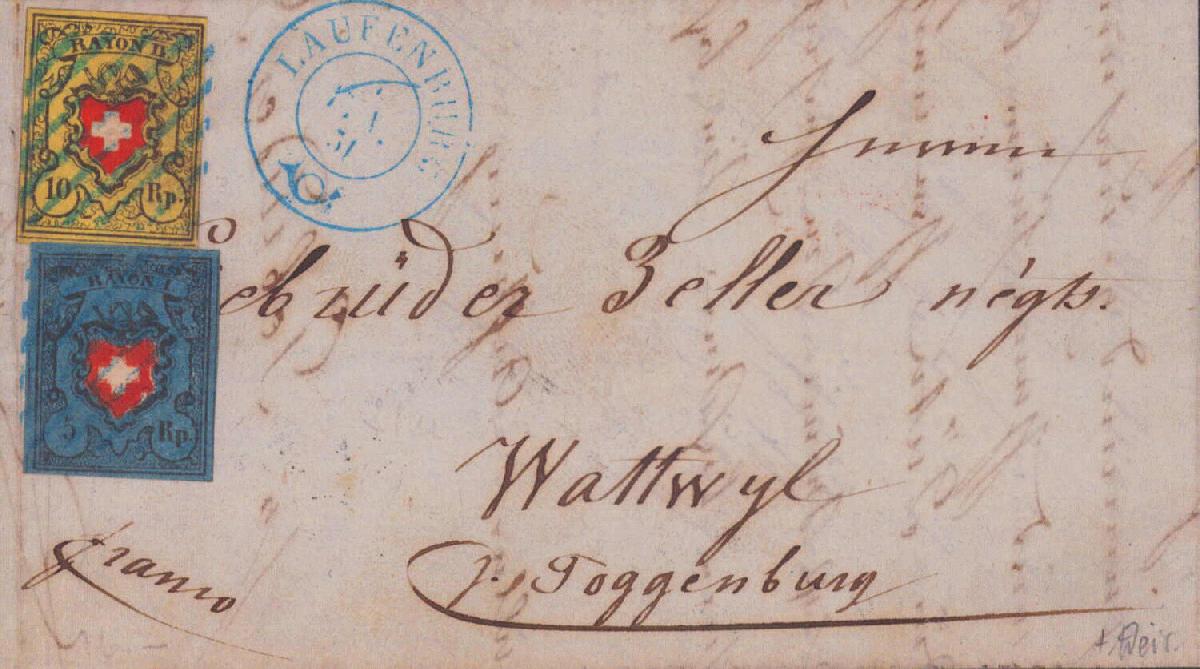 RAYON II.
10 Rp.
LAUFENBURG
Herren
Gebrüder Zeller négts.
RAYON I.
5 Rp.
Wattwyl
Toggenburg
franco